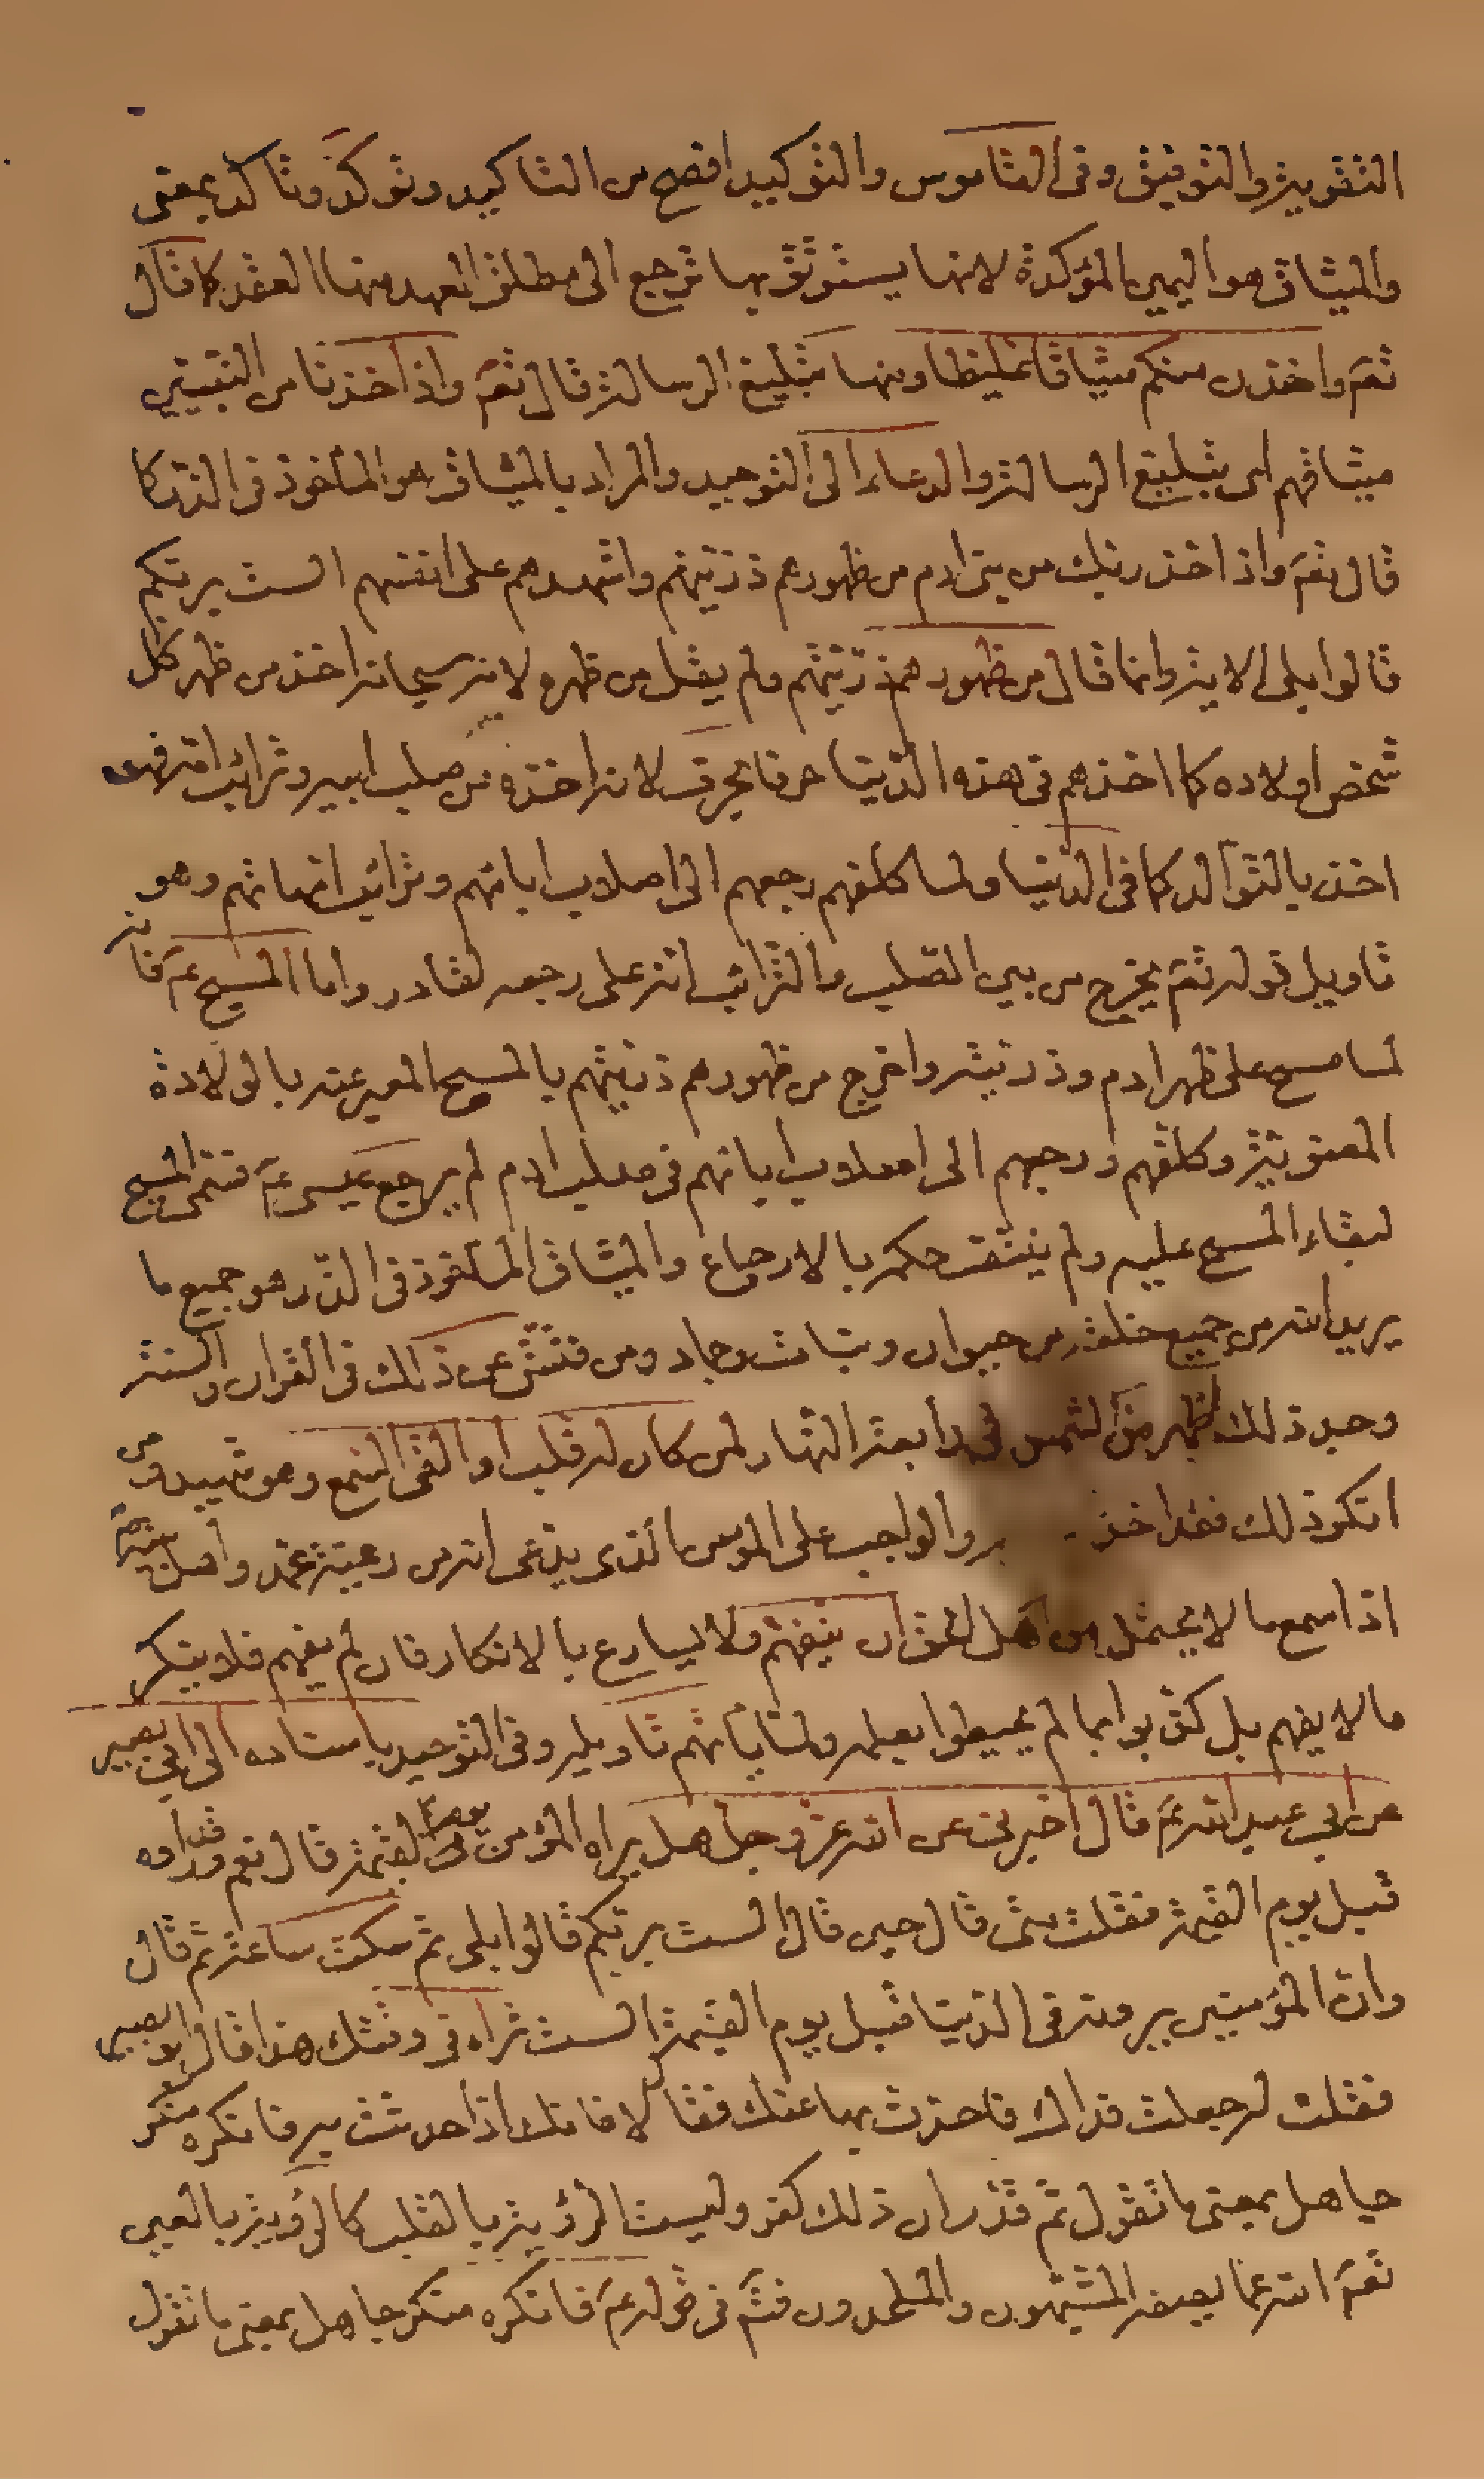 التقوية والتوفيق وفى القاموس والتوكيد افصح من التاكيد وتوكّد وتاكد بمعنى
والميثاق هو اليمين المؤكدة لانها يستوثق بها ترجع الى مطلق العهد منها العقد كما قال
تعٓ واخذن منكم ميثاقا غليظا ومنها تبليغ الرسالة قال تعٓ واذ اخذنا من النبيين
ميثاقهم اى بتبليغ الرسالة والدعاء الى التوحيد والمراد بالميثاق هو الماخوذ فى الذر كما
قال تعٓ واذ اخذ ربك من بنى ادم من ظهورهم ذريتهم واشهدهم على انفسهم الست بربكم
قالوا بلى الاية وانما قال من ظهورهم ذريتهم ولم يقل من ظهره لانه سبحانه اخذ من ظهر كل
شخص اولاده كما اخذهم فى هذه الدنيا حرفا بحرف لانه اخذه من صلب ابيه وترائب امه فهى
اخذ بالتوالد كما فى الدنيا ولما كلفهم رجعهم الى اصلاب ابائهم وترائب امهاتهم وهو
تاويل قوله تعٓ يخرج من بين الصلب والترائب انه على رجعه لقادر واما المسيح عٓم فانه
لما مسح على ظهر ادم وذريته واخرج من ظهورهم ذريتهم بالمسح المعبر عنه بالولادة
المعنوية وكلفهم ورجعهم الى اصلاب ابائهم فى صلب ادم لم يرجع عيسى عٓم فسمى المسيح
لبقاء المسح عليه ولم ينتقض حكمه بالارجاع والميثاق الماخوذ فى الذر هو جميع ما
يريد الله من جميع خلقه من حيوان ونبات وجماد ومن فتش عن ذلك فى القران والسنة
وجد ذلك اظهر من الشمس فى رابعة النهار لمن كان له قلب او القى السمع وهو شهيد ومن
انكر ذلك فقد اخذ والواجب على المؤمن الذى يدعى انه من رعية محمد واهل بيته
اذا سمع ما لا يحتمل من اهل الحق ان يتفهم ولا يسارع بالانكار فان لم يفهم فلا ينكر
ما لا يفهم بل كذبوا بما لم يحيطوا بعلمه ولما ياتهم تاويله وفى التوحيد باسناده الى ابى بصير
عن ابى عبد الله عٓم قال اخبرنى عن الله عز وجل هل يراه المؤمن يوم القيمة قال نعم وقد راوه
قبل يوم القيمة فقلت متى قال حين قال الست بربكم قالوا بلى ثم سكت ساعة ثم قال
وان المؤمنين يرونه فى الدنيا قبل يوم القيمة الست تراه فى وقتك هذا قال ابو بصير
فقلت له جعلت فداك فاحدث بها عنك فقال لا فانك اذا حدثت به فانكره منكر
جاهل بمعنى ما تقول ثم قدر ان ذلك كفر وليست الرؤية بالقلب كالرؤية بالعين
تعٓ الله عما يصفه المشبهون والملحدون فتم فى قوله عٓم فانكره منكر جاهل بمعنى ما تقول